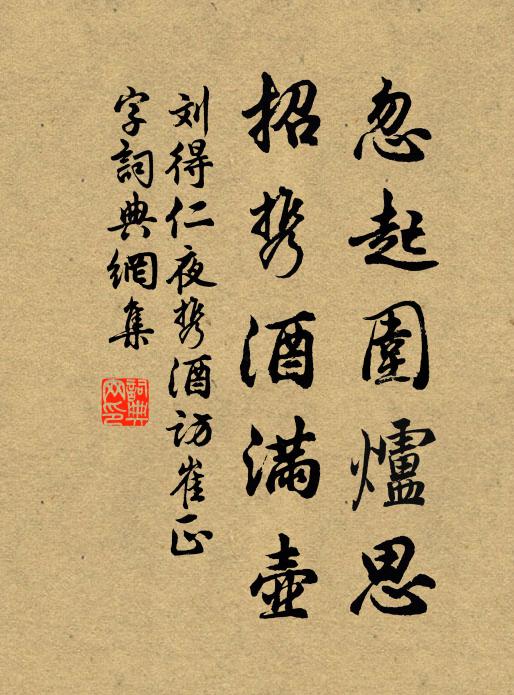 忽起围爐思
招携酒满壶
刘得仁夜携酒访崔正
字詞典網集
詞典网印